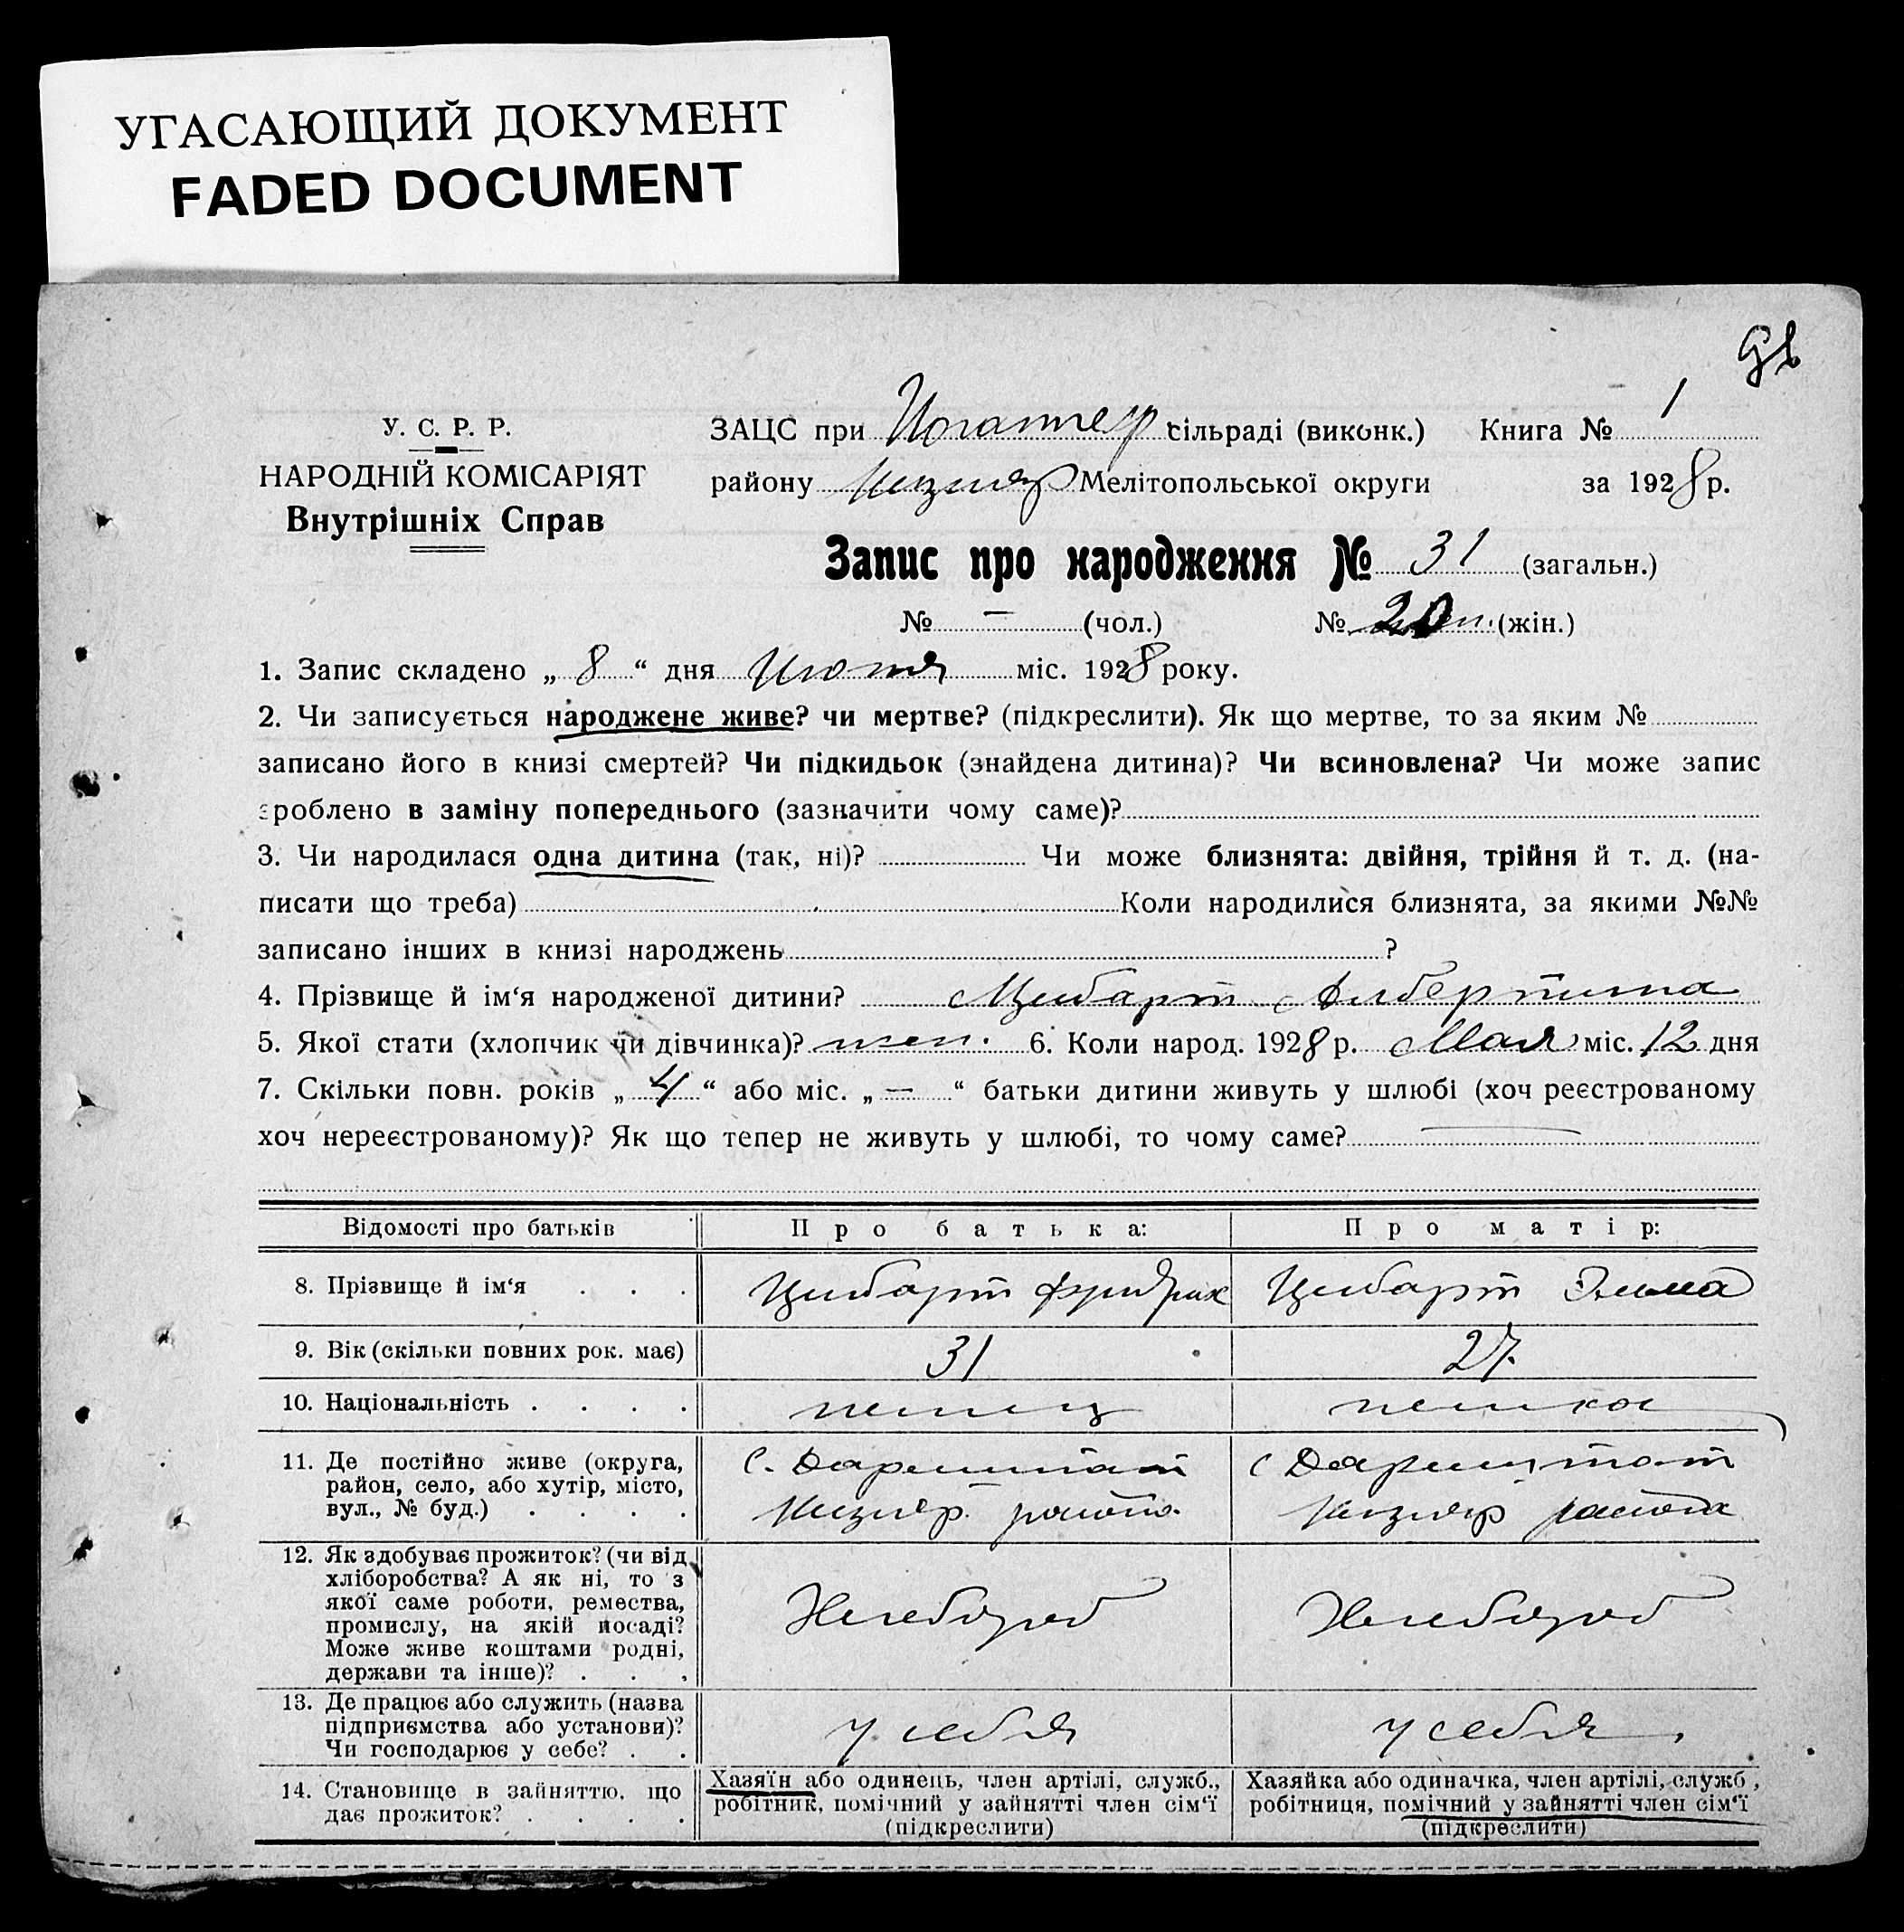 УГАСАЮЩИЙ ДОКУМЕНТ
FADED DOCUMENT
У. С. Р. Р.
НАРОДНІЙ КОМІСАРІЯТ
Внутрішніх Справ
ЗАЦС при сільраді (виконк.) Книга № 1
району Мелітопольської округи за 1928 р.
Запис про народження № 31 (загальн.)
№ — (чол.) № 20 (жін.)
1. Запис складено „ 8 “ дня Июня міс. 1928 року.
2. Чи записується народжене живе? чи мертве? (підкреслити). Як що мертве, то за яким №
записано його в книзі смертей? Чи підкидьок (знайдена дитина)? Чи всиновлена? Чи може запис
зроблено в заміну попереднього (зазначити чому саме)?
3. Чи народилася одна дитина (так, ні)? Чи може близнята: двійня, трійня й т. д. (на-
писати що треба) Коли народилися близнята, за якими №№
записано інших в книзі народжень ?
4. Прізвище й ім‘я народженої дитини? Цибарт Альбертина
5. Якої стати (хлопчик чи дівчинка)? жен. 6. Коли народ. 1928 р. Мая міс. 12 дня
7. Скільки повн. років „ 4 “ або міс. „ — “ батьки дитини живуть у шлюбі (хоч реєстрованому
хоч нереєстрованому)? Як що тепер не живуть у шлюбі, то чому саме? —
Відомості про батьків Про батька: Про матір:
8. Прізвище й ім‘я . . . Цибарт Фридрих Цибарт Эмма
9. Вік (скільки повних рок. має) 31 27.
10. Національність . . . . немец немка
11. Де постійно живе (округа,
район, село, або хутір, місто,
вул., № буд.) . . . .
с. Дармштат
района
с Дармштат
района
12. Як здобуває прожиток? (чи від
хліборобства? А як ні, то з
якої саме роботи, ремества,
промислу, на якій посаді?
Може живе коштами родні,
держави та інше)? . . .
Хлебороб Хлебороб
13. Де працює або служить (назва
підприємства або установи)?
Чи господарює у себе? . .
у себя у себя
14. Становище в зайняттю, що
дає прожиток? . . . .
Хазяїн або одинець, член артілі, служб.,
робітник, помічний у зайнятті член сім‘ї
(підкреслити)
Хазяйка або одиначка, член артілі, служб ,
робітниця, помічний у зайнятті член сім‘ї
(підкреслити)